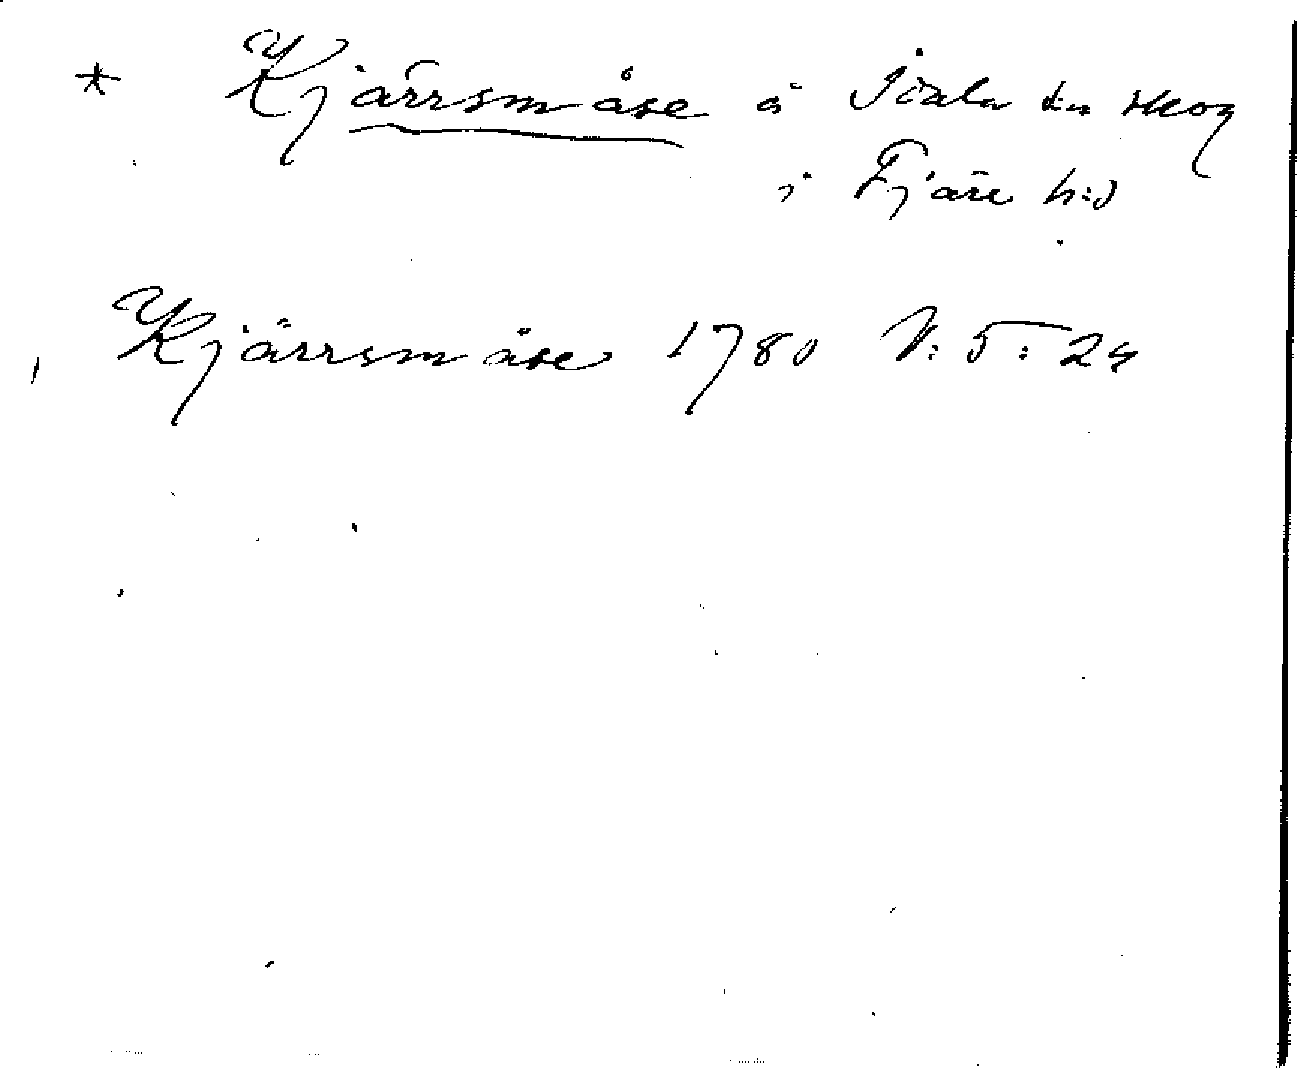 * Kjärrsmåse å Idala sn skog
i Fjäre h:d
Kjärrsmåse 1780 N: 5: 24